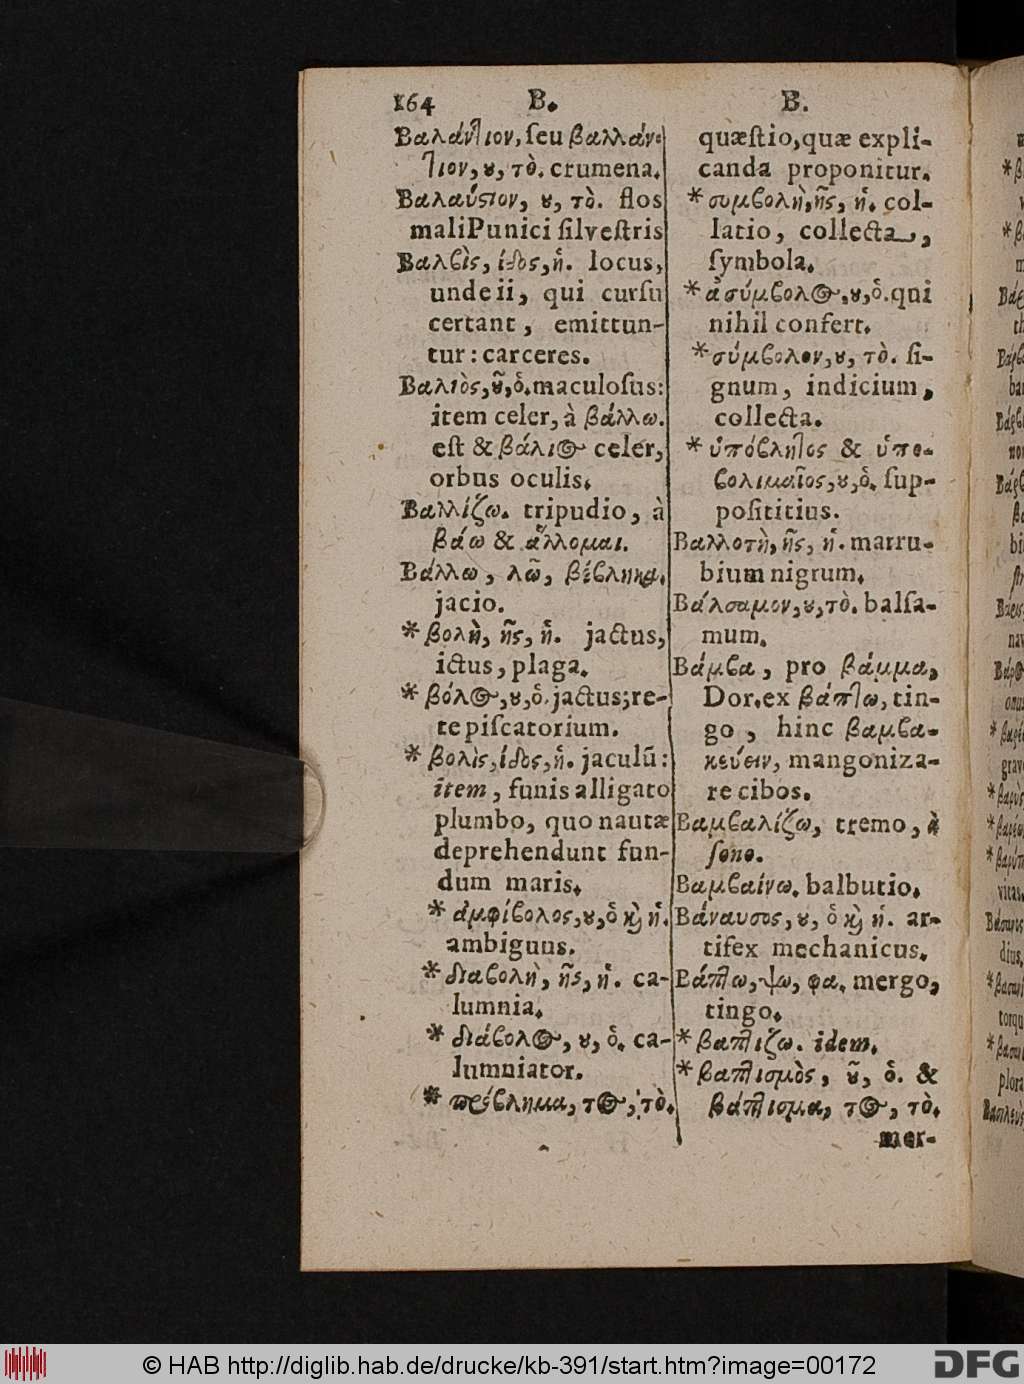 164 B. B.
Βαλάντιον, ſeu βαλλάν-
τιον, ου, τὸ. crumena.
Βαλαύστιον, ου, τὸ. flos
mali Punici ſilveſtris
Βαλβὶς, ίδος, ἡ. locus,
unde ii, qui curſu
certant, emittun-
tur: carceres.
Βαλιὸς, οῦ, ὁ. maculoſus:
item celer, à βάλλω.
eſt & βάλιος celer,
orbus oculis.
Βαλλίζω. tripudio, à
βάω & ἅλλομαι.
Βάλλω, λῶ, βέβληκα.
jacio.
* βολὴ, ῆς, ἡ. jactus,
ictus, plaga.
* βόλος, ου, ὁ. jactus; re-
te piſcatorium.
* βολὶς, ίδος, ἡ. jaculū:
item, funis alligato
plumbo, quo nautæ
deprehendunt fun-
dum maris.
* ἀμφίβολος, ου, ὁ καὶ ἡ.
ambiguus.
* διαβολὴ, ῆς, ἡ. ca-
lumnia.
* διάβολος, ου, ὁ. ca-
lumniator.
* πρόβλημα, τος, τὸ.
quæſtio, quæ expli-
canda proponitur.
* συμβολὴ, ῆς, ἡ. col-
latio, collecta,
ſymbola.
* ἀσύμβολος, ου, ὁ. qui
nihil confert.
* σύμβολον, ου, τὸ. ſi-
gnum, indicium,
collecta.
* ὑπόβλητος & ὑπο-
βολιμαῖος, ου, ὁ. ſup-
poſititius.
Βαλλοτὴ, ῆς, ἡ. marru-
bium nigrum.
Βάλσαμον, ου, τὸ. balſa-
mum.
Βάμβα, pro βάμμα,
Dor. ex βάπτω, tin-
go, hinc βαμβα-
κεύειν, mangoniza-
re cibos.
Βαμβαλίζω, tremo, à
ſono.
Βαμβαίνω. balbutio.
Βάναυσος, ου, ὁ καὶ ἡ. ar-
tifex mechanicus.
Βάπτω, ψω, φα. mergo,
tingo.
* βαπτίζω. idem.
* βαπτισμὸς, οῦ, ὁ. &
βάπτισμα, τος, τὸ.
mer-
© HAB http://diglib.hab.de/drucke/kb-391/start.htm?image=00172
DFG